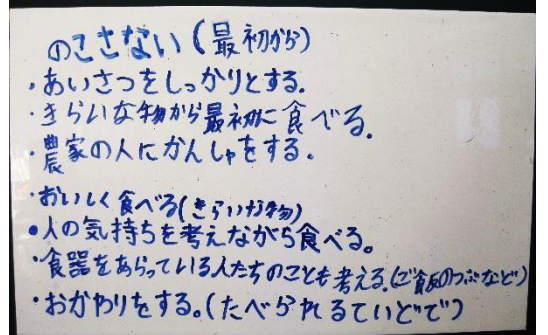 のこさない(最初から)
・あいさつをしっかりとする.
・きらいな物から最初に食べる.
・農家の人にかんしゃをする.
・おいしく食べる(きらいな物)
●人の気持ちを考えながら食べる。
・食器をあらっている人たちのことも考える.(ご飯のつぶなど)
・おかわりをする。(たべられるていどで)